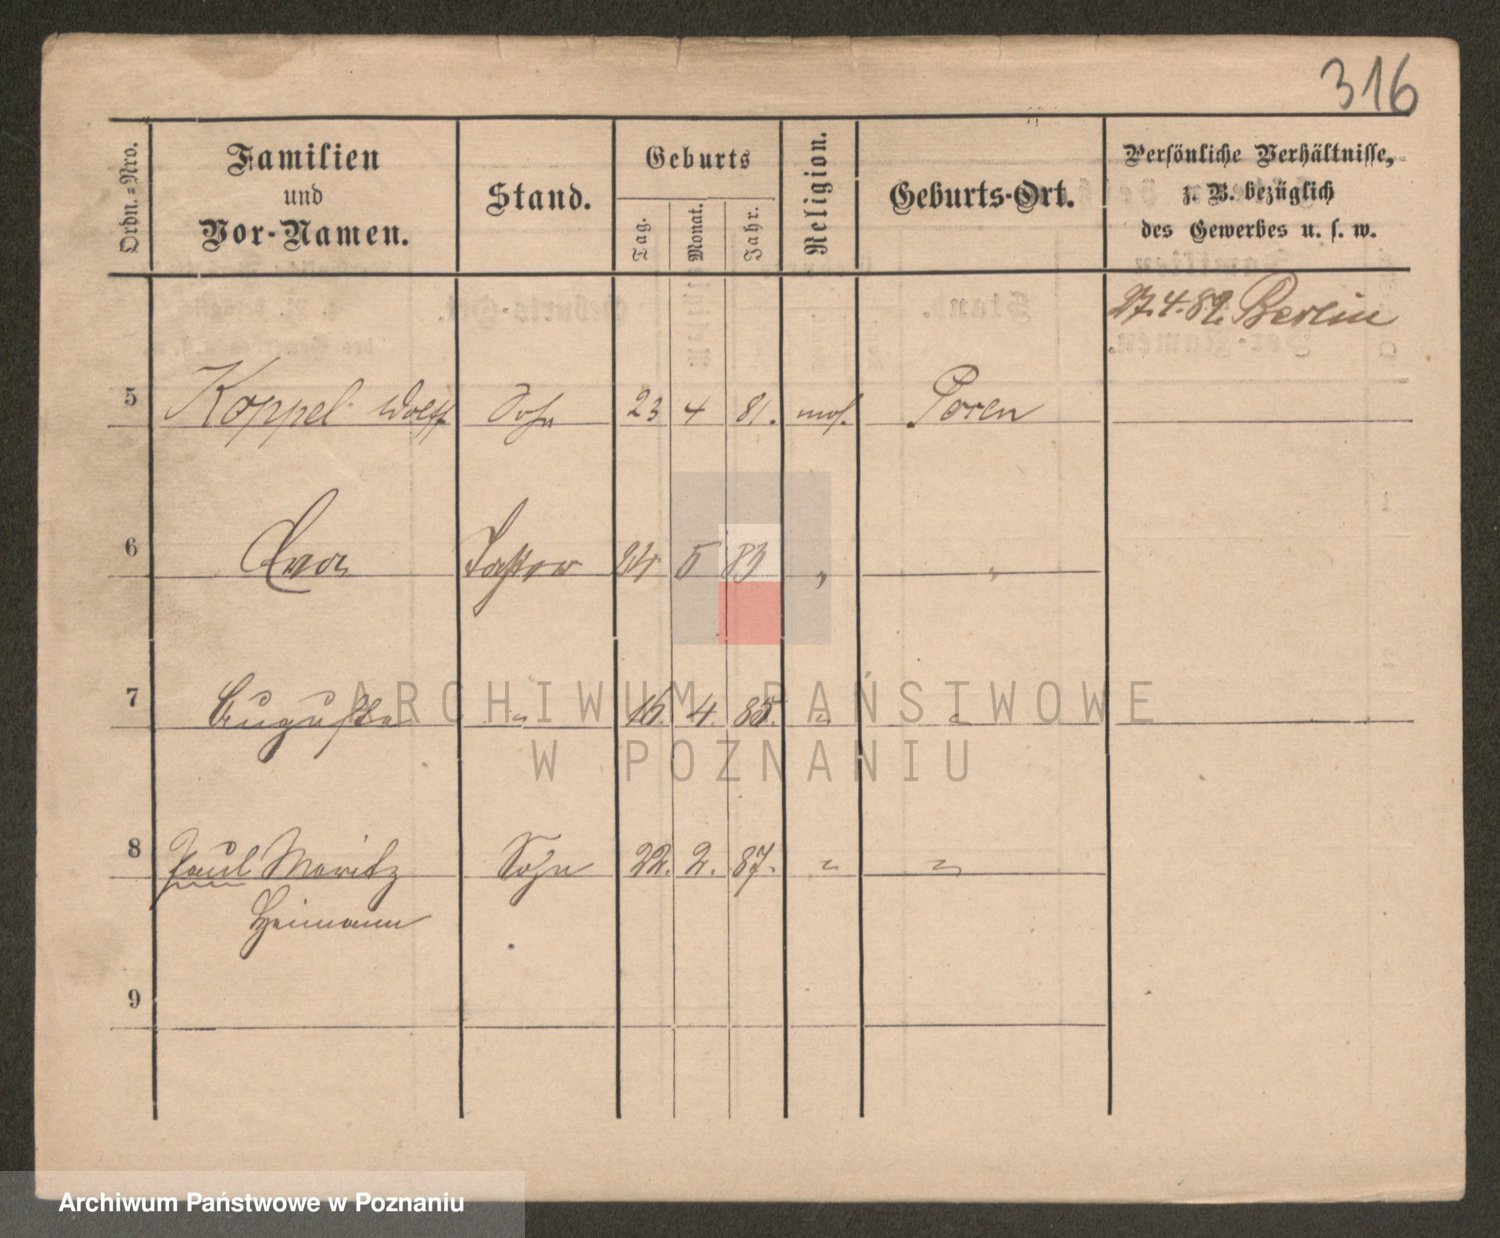 316
Ordn.-Nro. Familien und Vor-Namen. Stand. Geburts Tag. Monat. Jahr. Religion. Geburts-Ort. Persönliche Verhältnisse, z. B. bezüglich des Gewerbes u. s. w.
27.4.89. Berlin
5 Koppel Wolff Sohn 23 4 81. mos. Posen
6 Tochter 24 5 83 " "
7 Auguste " 16. 4. 85. " "
8 Paul Moritz Sohn 22. 2. 87. " "
Heimann
9
ARCHIWUM PAŃSTWOWE
W POZNANIU
Archiwum Państwowe w Poznaniu